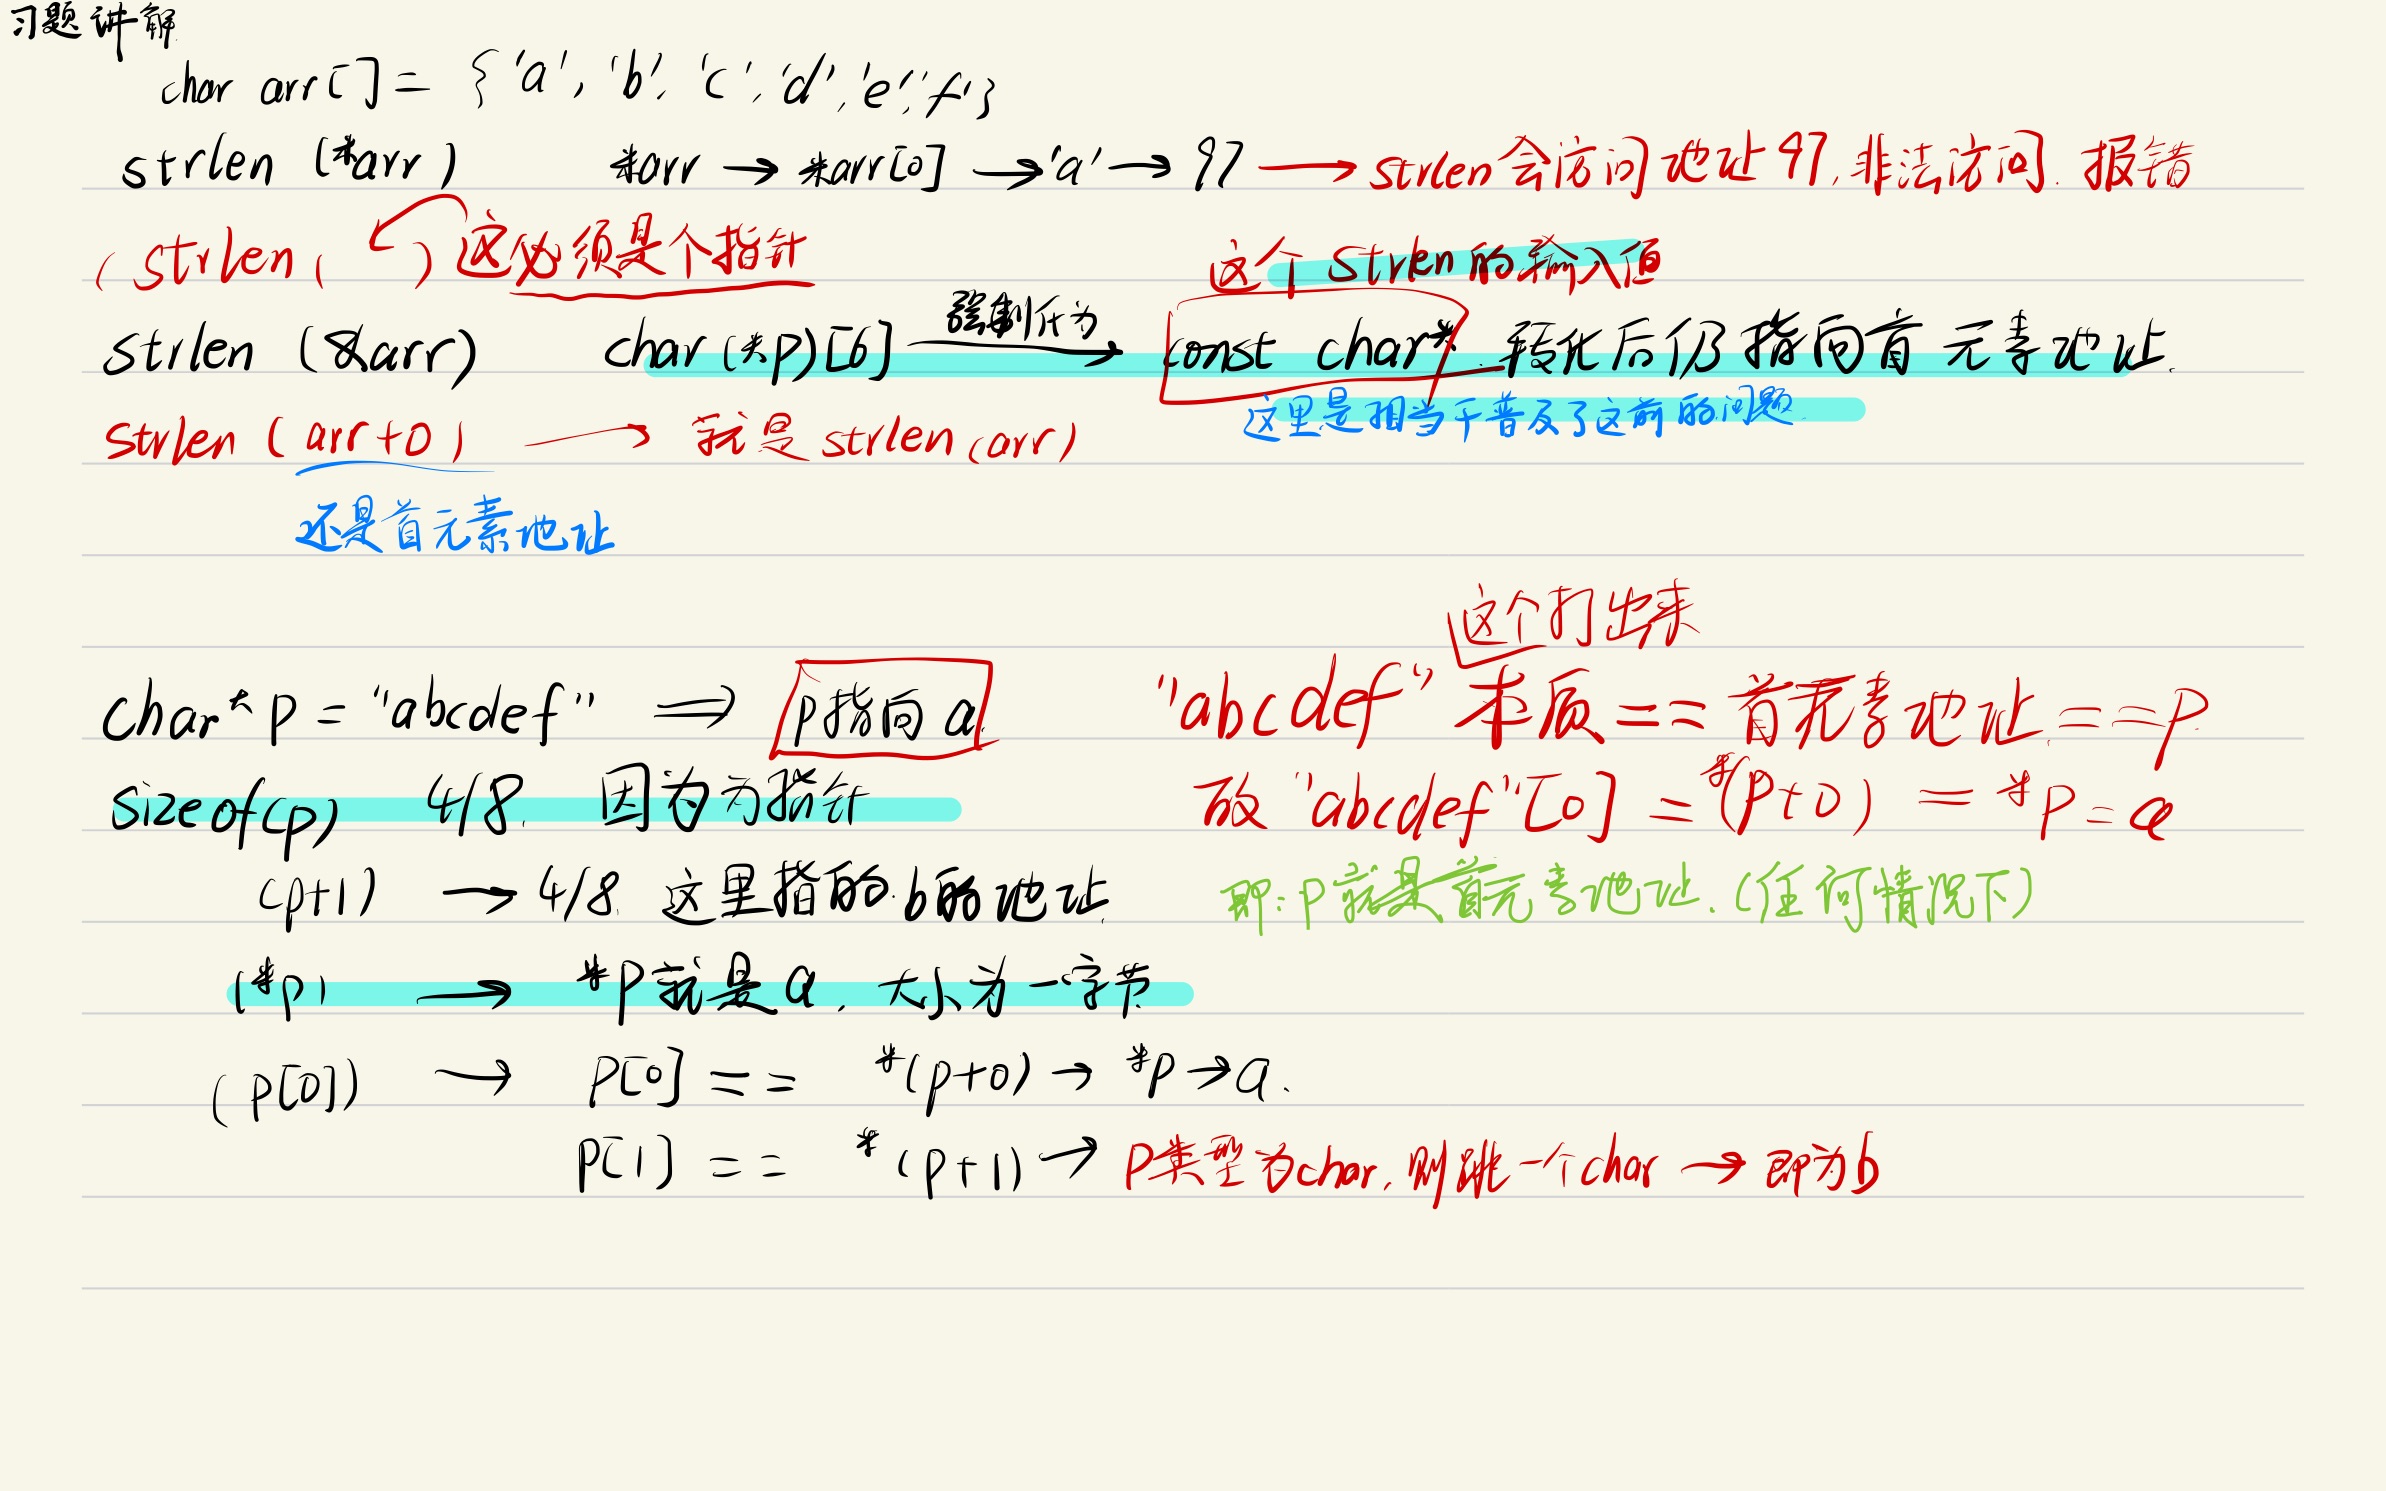 习题讲解
char arr[] = {'a', 'b', 'c', 'd', 'e', 'f'}
strlen (*arr) *arr → *arr[0] → 'a' → 97 → strlen会访问地址97,非法访问.报错
(strlen( ) 这必须是个指针
这个strlen的输入值
strlen (&arr) char(*p)[6] 强制转为 → const char* 转化后仍指向首元素地址.
这里是相当于普及了这前的问题.
strlen (arr+0) → 就是strlen(arr)
还是首元素地址
这个打出来
char* p = "abcdef" ⇒ p指向a.
"abcdef" 本质 == 首元素地址 == p.
sizeof(p) 4/8. 因为为指针
故 "abcdef"[0] = *(p+0) = *p = a
(p+1) → 4/8. 这里指的.b的地址
即:p就是首元素地址.(任何情况下)
(*p) → *p就是a. 大小为一字节
(p[0]) → p[0] == *(p+0) → *p → a.
p[1] == *(p+1) → p类型为char,则跳一个char → 即为b